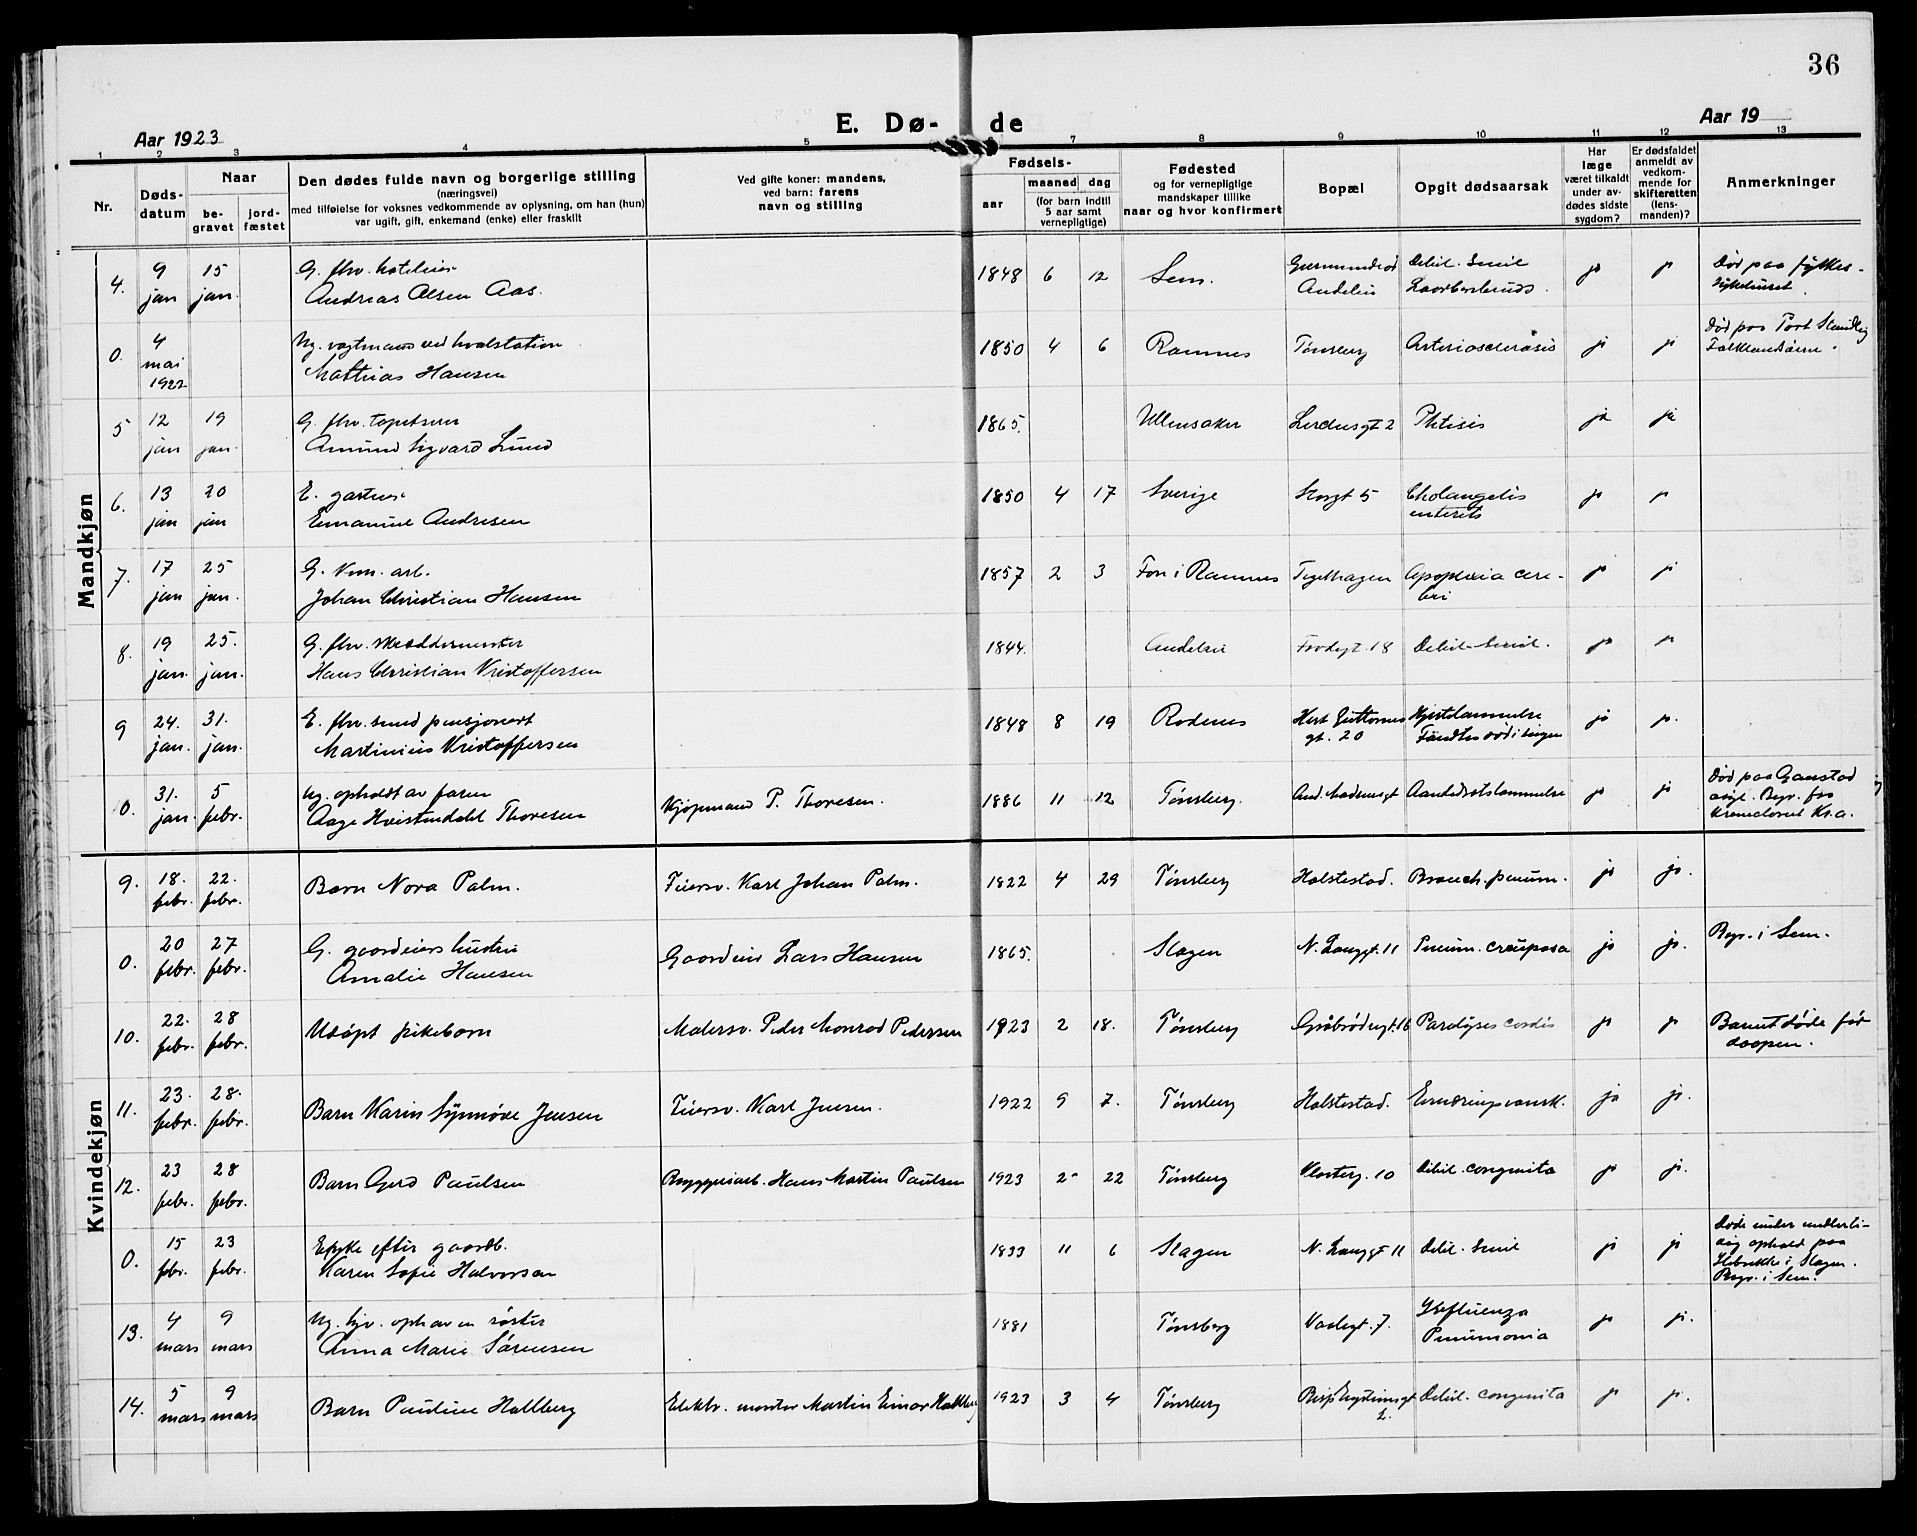 36
E. Dø- de
Aar 1923
Aar 19
1 2 3 4 5 7 8 9 10 11 12 13
Nr.
Døds-
datum
Naar
be-
gravet
jord-
fæstet
Den dødes fulde navn og borgerlige stilling
(næringsvei)
med tilføielse for voksnes vedkommende av oplysning, om han (hun)
var ugift, gift, enkemand (enke) eller fraskilt
Ved gifte koner: mandens,
ved barn: farens
navn og stilling
Fødsels-
aar
maaned dag
(for barn indtil
5 aar samt
vernepligtige)
Fødested
og for vernepligtige
mandskaper tillike
naar og hvor konfirmert
Bopæl
Opgit dødsaarsak
Har
læge
været tilkaldt
under av-
dødes sidste
sygdom?
Er dødsfaldet
anmeldt av
vedkom-
mende for
skifteretten
(lens-
manden)?
Anmerkninger
Mandkjøn
4. 9 jan 15 jan. G. fhv. hoteleier
Andreas Olsen Aas. 1848 6 12 Sem. Andebu Debil. Senil ja ja Død paa fylkes-
sykehuset.
0. 4 mai 1922 Ug. vagtmand ved hvalstation
Mathias Hansen 1850 4 6 Ramnes Tønsberg Arteriosclerosis ja ja Død paa Port Standley
Falklandsøerne.
5 12 jan 19 jan. G. fhv. tapetserer
Amund Sigvard Lund 1865. Ullensaker 2 Phtisis ja ja
6. 13 jan 20 jan E. gartner
Emanuel Andresen 1850 4 17 Sverige Storgt 5 Cholangitis
enterits ja ja
7. 17 jan 25 jan. G. Kom. arb.
Johan Christian Hansen 1857 2 3 Fon i Ramnes Teglhagen Apoplexia cere-
bri ja ja
8. 19 jan. 25. jan. G. fhv.
Hans Christian Kristoffersen 1844. Andebu 18 Debil. Senil. ja ja
9 24. jan. 31. jan. E. fhv. smed pensjonert
Martinius Kristoffersen 1848 8 19 Rødenes Hert Guttorms
gt. 20 Hjertelammelse
Fandtes død i sengen ja ja.
0. 31. jan. 5 febr. Ug. opholdt av faren
Aage Hvistendahl Thoresen Kjøpmand P. Thoresen. 1886 11 12 Tønsberg. And. Madsensgt Aandedrætslammelse ja ja Død paa Gaustad
asyl. Begr. fra
Krematoriet Kr.a.
Kvindekjøn
9. 18. febr. 22. febr. Barn Nora Palm. Feiersv. Karl Johan Palm. 1822 4 29 Tønsberg Halstestad. Bronch. pneum. ja ja.
0. 20 febr. 27 febr. G. gaardeiers hustru
Amalie Hansen Gaardeier Lars Hansen 1865. Slagen N. Langgt. 11 Pneum. crouposa ja ja. Begr. i Sem.
10. 22. febr. 28 febr. Udøpt pikebarn Malersv. Peder Monrad Pedersen 1923 2 18. Tønsberg Gråbrødregt. 16 Paralyses cordis ja ja Barnet døde før
daapen.
11. 23. febr. 28. febr. Barn Karin Synnøve Jensen Feiersv. Karl Jensen. 1922 9 7. Tønsberg Halstestad. Ernæringsvansk. ja ja.
12. 23 febr. 28 febr. Barn Gerd Paulsen Bryggeriarb. Hans Martin Paulsen 1923 2 22 Tønsberg Klosterg. 10 Debil. congenita ja ja.
0. 15 febr. 23 febr. Enke efter gaardb.
Karen Sofie Halvorsen 1833 11 6 Slagen N. Langgt 11 Debil. Senil ja ja Døde under midlerti-
dig ophold paa
i Slagen.
Begr. i Sem.
13. 4 mars 9 mars Ug. hjv. oph av en søster
Anna Marie Sørensen 1881 Tønsberg 7. Influenza
Pneumonia ja ja.
14. 5 mars 9 mars Barn Pauline Hallberg Elektr. montør Martin Einar Hallberg 1923 3 4 Tønsberg Debil. congenita ja ja.